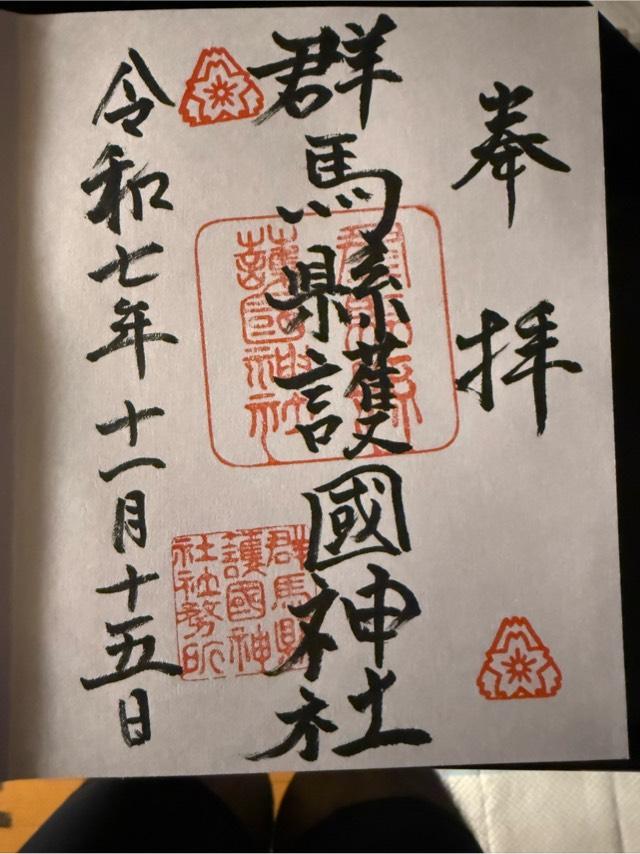 奉拝
群馬縣護國神社
群馬縣
護國神社
群馬縣
護國神
社社務所
令和七年十一月十五日